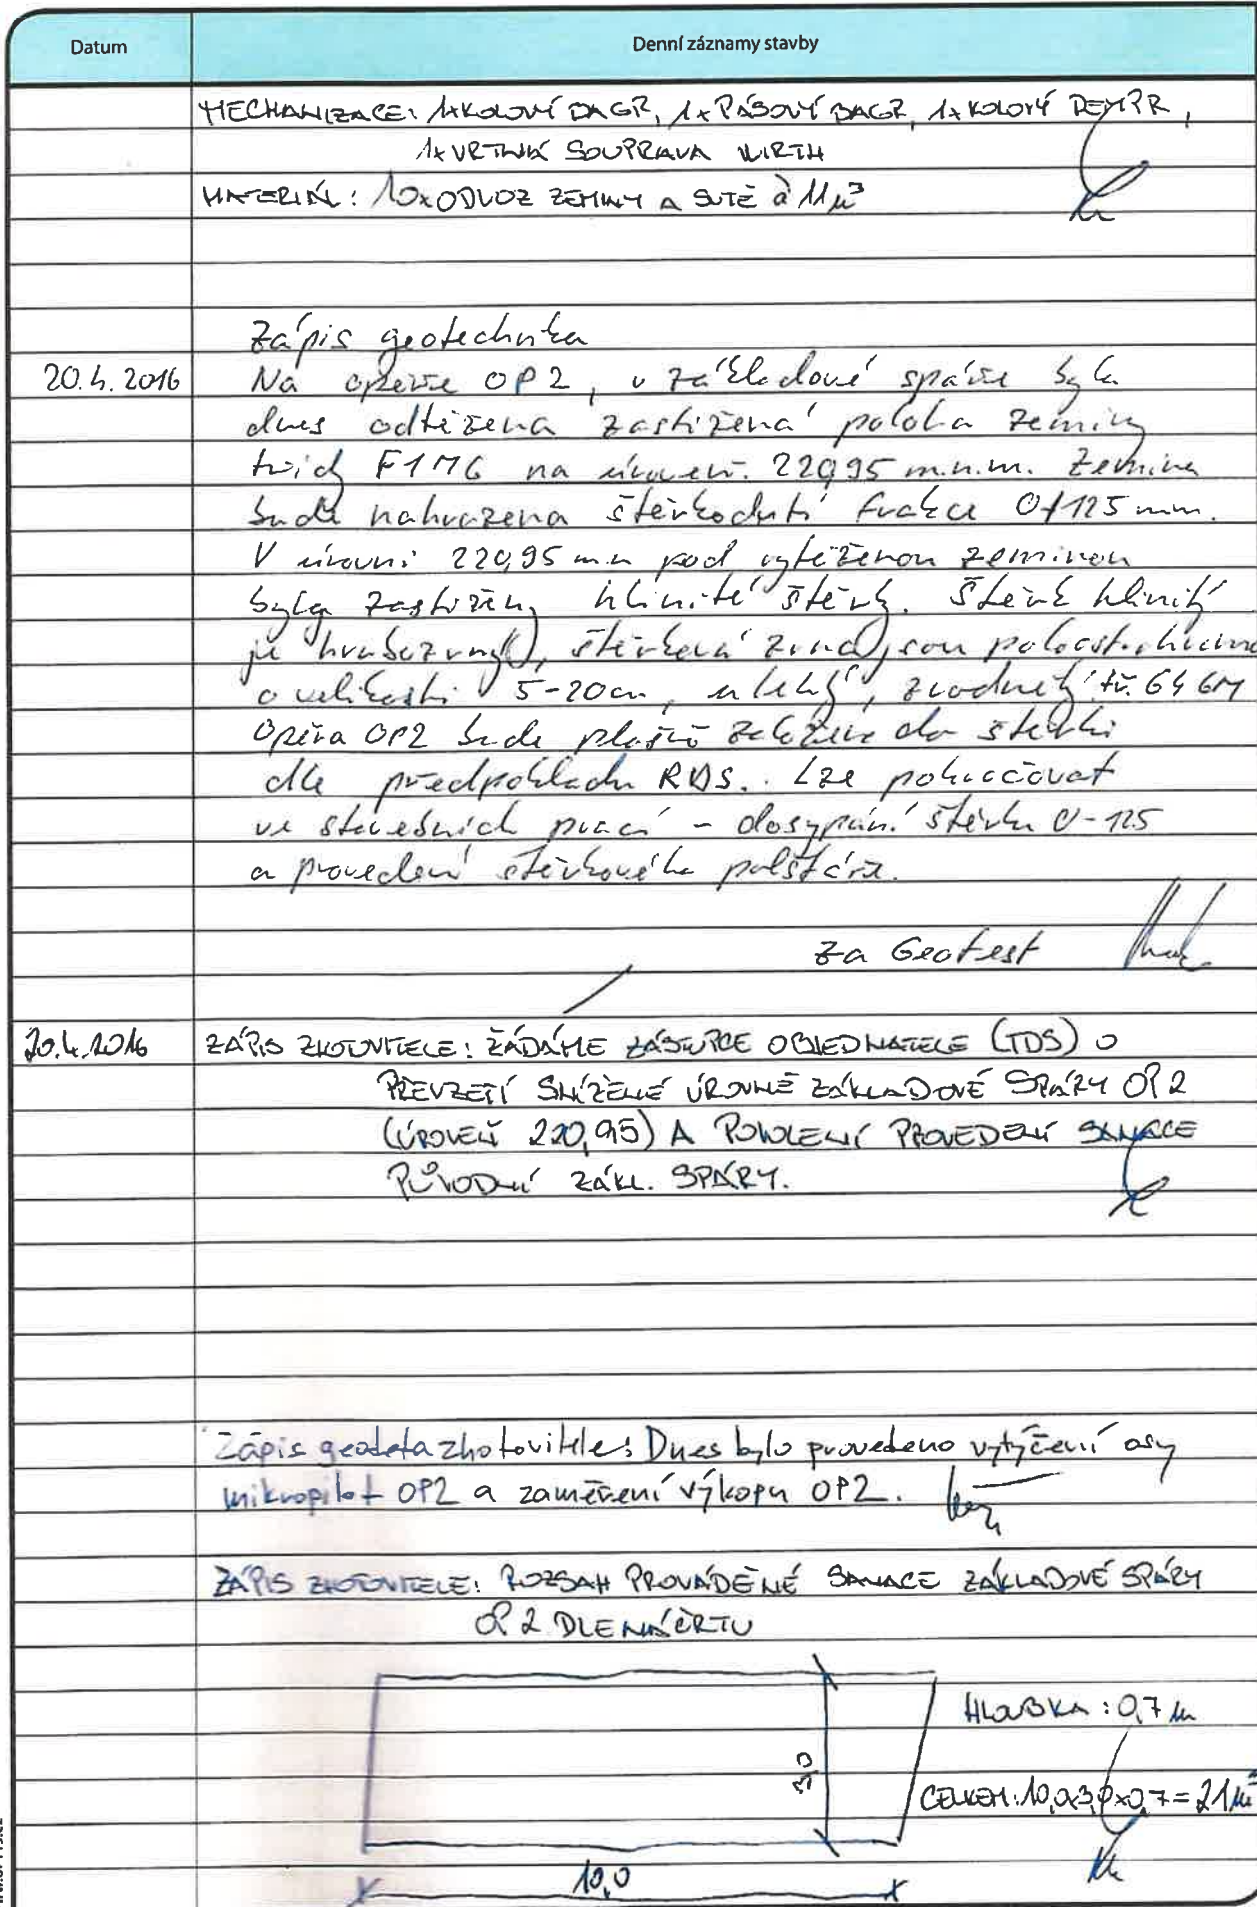 Datum
Denní záznamy stavby
MECHANIZACE: 1x KOLOVÝ BAGR, 1x PÁSOVÝ BAGR, 1x KOLOVÝ DEMPR,
1x VRTNÁ SOUPRAVA WIRTH
MATERIÁL: 10x ODVOZ ZEMINY A SUTĚ à 11 m³
Zápis geotechnika
20.4. 2016
Na opěře OP2, v základové spáře byla
dnes odtěžena zastižená poloha zeminy
třídy F1MG na úroveň. 220,95 m.n.m. Zemina
bude nahrazena štěrkodrtí frakce 0/125 mm.
V úrovni 220,95 m.n pod vytěženou zeminou
byly zastiženy hlinité štěrky. Štěrk hlinitý
je hrubozrnný, štěrková zrna jsou poloostrohranná
o velikosti 5-20cm, ulehlý, zvodnělý tř. G4 GM
Opěra OP2 bude plošně založena do štěrků
dle předpokladu RDS. Lze pokračovat
ve stavebních prací - dosypání štěrku 0-125
a provedení štěrkového polštáře.
Za Geotest
20.4.2016
ZÁPIS ZHOTOVITELE: ŽÁDÁME ZÁSTUPCE OBJEDNATELE (TDS) O
PŘEVZETÍ SNÍŽENÉ ÚROVNĚ ZÁKLADOVÉ SPÁRY OP2
(ÚROVEŇ 220,95) A POVOLENÍ PROVEDENÍ SANACE
PŮVODNÍ ZÁKL. SPÁRY.
Zápis geodeta zhotovitele: Dnes bylo provedeno vytýčení osy
mikropilot OP2 a zaměření výkopu OP2.
ZÁPIS ZHOTOVITELE: ROZSAH PROVÁDĚNÉ SANACE ZÁKLADOVÉ SPÁRY
OP 2 DLE NÁČRTU
HLOUBKA: 0,7 m
3,0
CELKEM: 10,0x3,0x0,7 = 21 m³
10,0